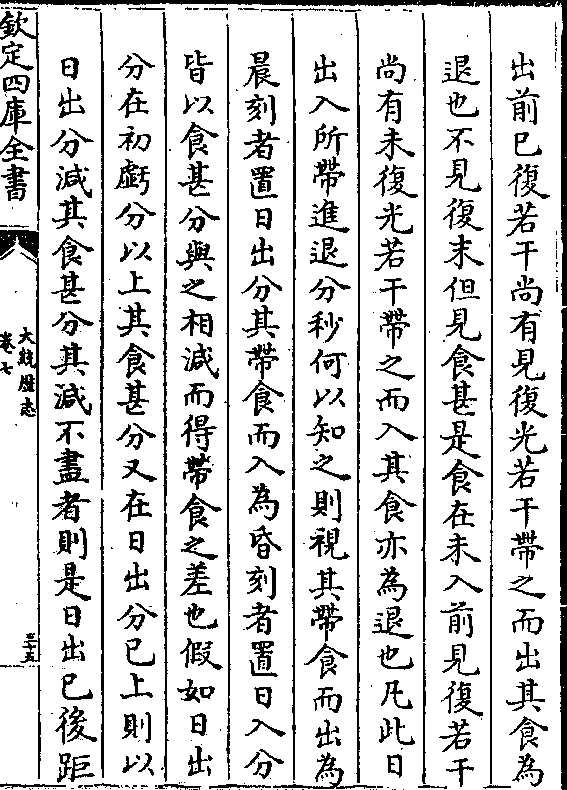 出前已復若干尚有見復光若干帶之而出其食為
退也不見復末但見食甚是食在未入前見復若干
尚有未復光若干帶之而入其食亦為退也凡此日
出入所帶進退分秒何以知之則視其帶食而出為
晨刻者置日出分其帶食而入為昏刻者置日入分
皆以食甚分與之相減而得帶食之差也假如日出
分在初虧分以上其食甚分又在日出分已上則以
日出分減其食甚分其減不盡者則是日出已後距
欽定四庫全書
大統歴志
卷七
三十五